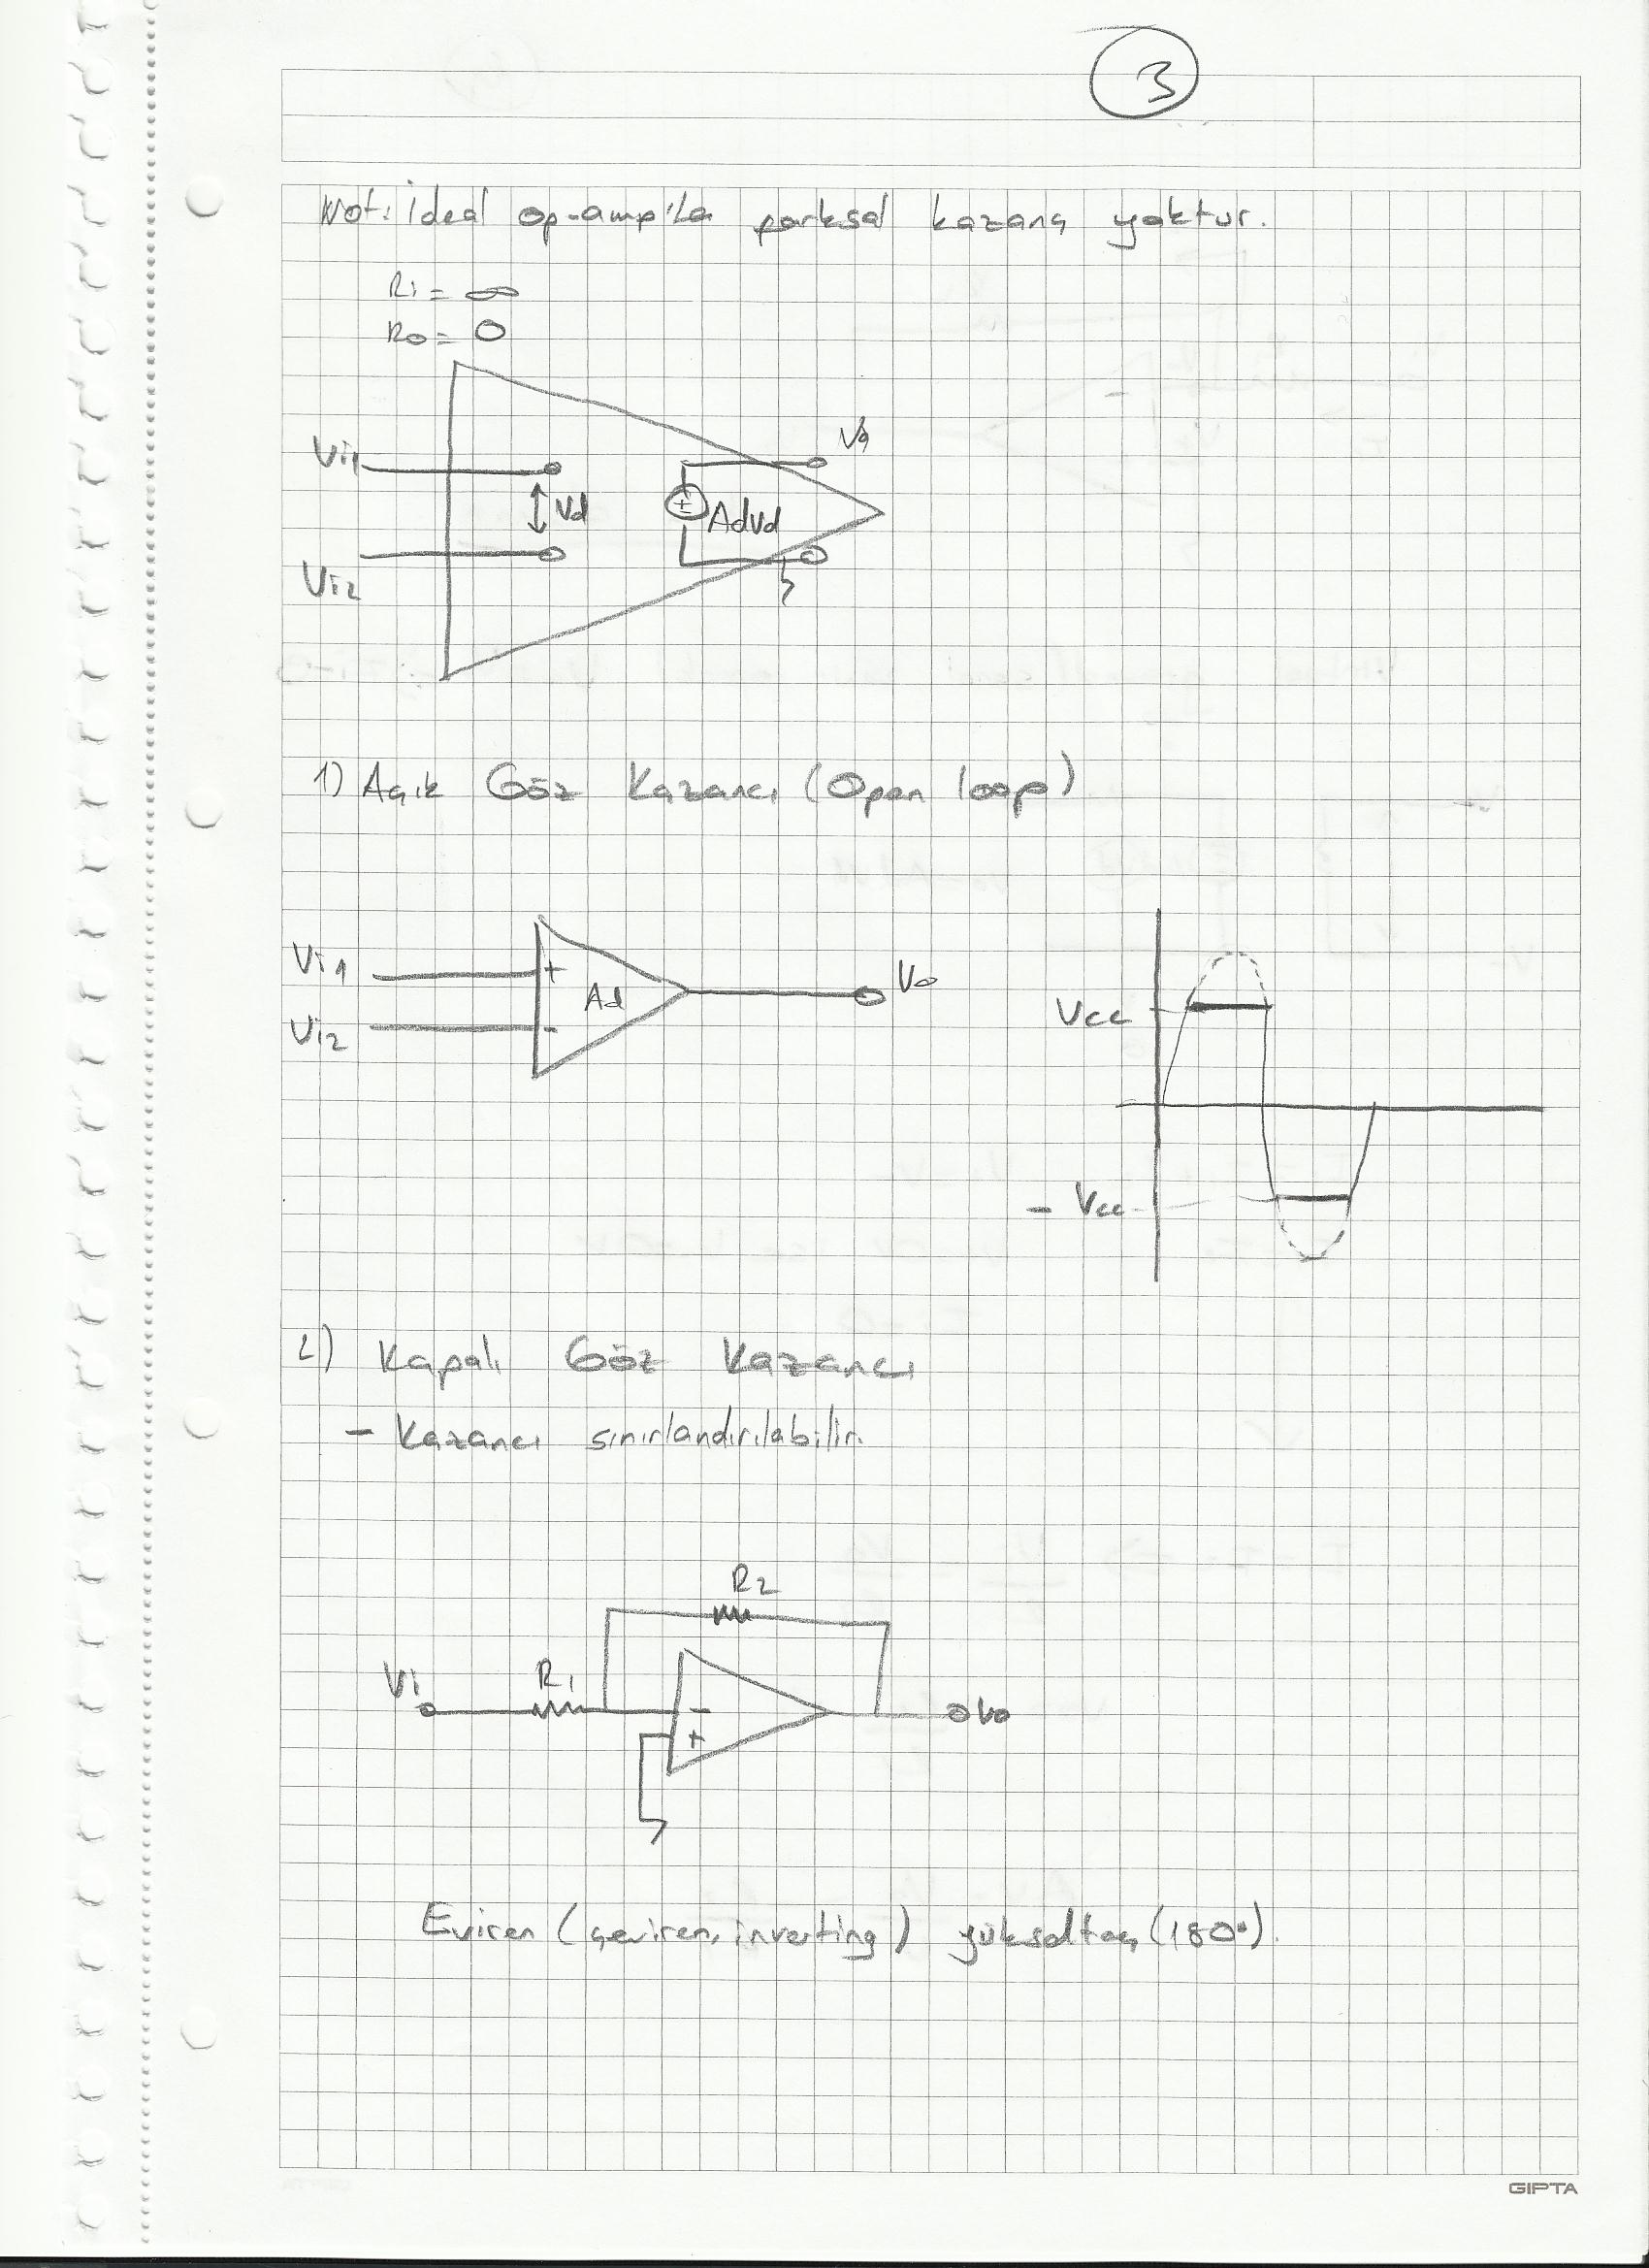 3
Not: ideal op-amp'la parksal kazanç yoktur.
Ri = ∞
Ro = 0
Vi1
Vd
Vi2
AdVd
1) Açık Göz Kazancı (Open loop)
Vi1
+
Ad
Vo
Vi2
-
Vcc
- Vcc
2) Kapalı Göz Kazancı
- Kazancı sınırlandırılabilir.
R2
Vi
R1
-
+
Vo
Eviren (çeviren, inverting) yükseltaç (180°).
GIPTA